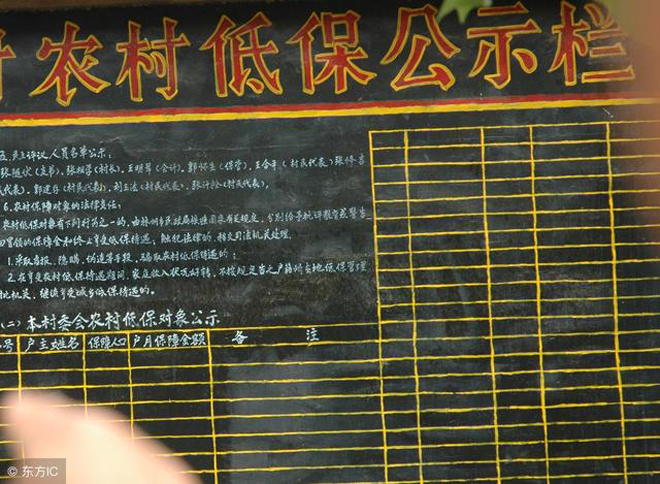 农村低保公示栏
五、民主评议人员名单公示:
张随伏(支书)、张相学(村长)、王明琴(会计)、郭怀生(保管)、王合平(村民代表)张修吉
代表)、郭建存(村民代表)、刘玉法(村民代表)、张计拴(村民代表)。
6.农村保障对象的法律责任:
农村低保对象有下列行为之一的,由县级民政
冒领的保障金和终止享受低保待遇。触犯法律的,移交司法机关处理。
1.采取虚报、隐瞒、伪造等手段,骗取农村低保待遇的;
2.在享受农村低保待遇期间,家庭收入状况好转,不按规定告之户籍所在地低保管理
机关,继续享受城乡低保待遇的。
(二)本村委会农村低保对象公示
号 户主姓名 保障人口 户月保障金额 备 注
© 东方IC